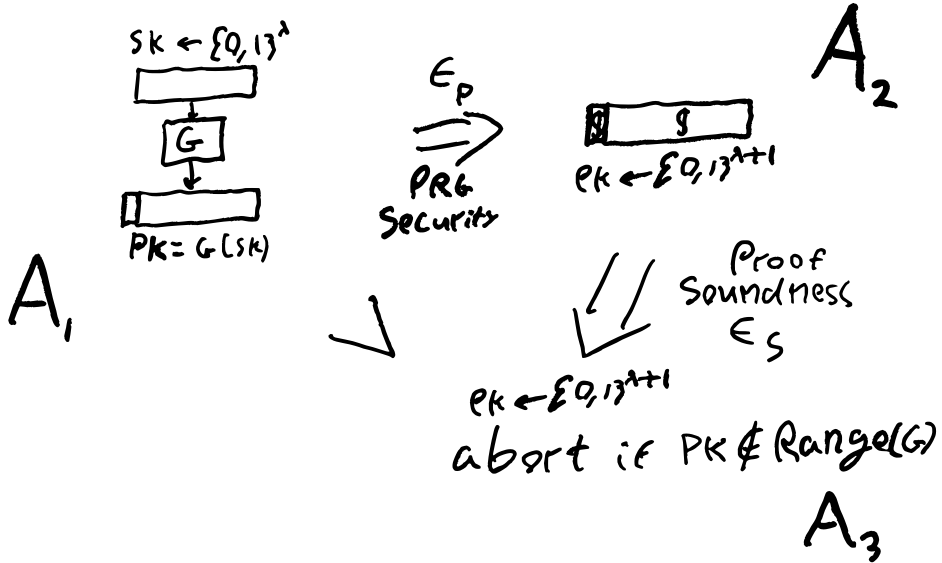 SK ← {0,1}^λ
G
PK = G(SK)
A₁
ϵ_P
PRG
Security
$ $
PK ← {0,1}^λ+1
A₂
Proof
Soundness
ϵ_S
PK ← {0,1}^λ+1
abort if PK ∉ Range(G)
A₃